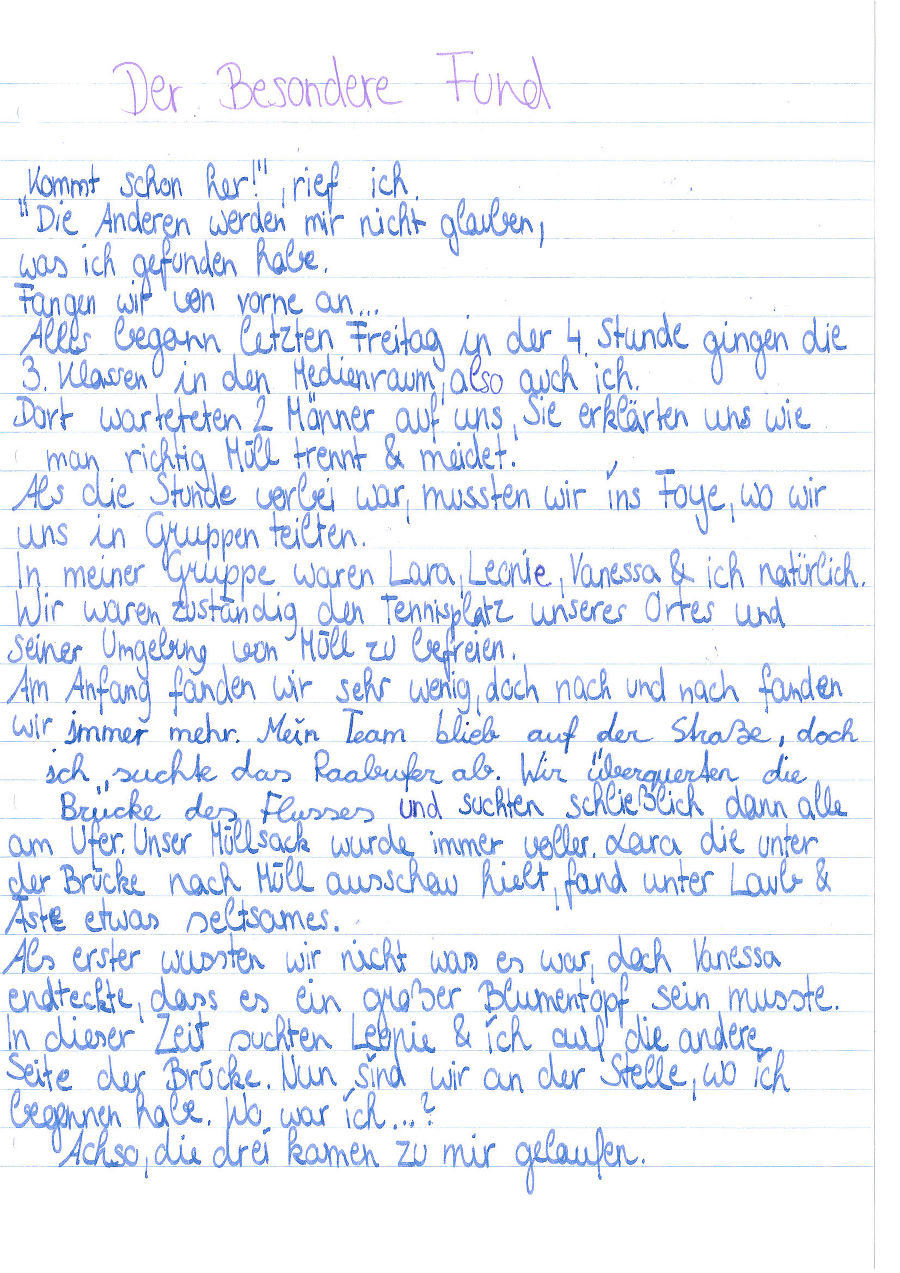 Der Besondere Fund
„Kommt schon her!", rief ich.
"Die Anderen werden mir nicht glauben,
was ich gefunden habe.
Fangen wir von vorne an...
Alles begann letzten Freitag in der 4. Stunde gingen die
3. Klassen in den Medienraum, also auch ich.
Dort warteteten 2 Männer auf uns, Sie erklärten uns wie
man richtig Müll trennt & meidet.
Als die Stunde vorbei war, mussten wir ins Foye, wo wir
uns in Gruppen teilten.
In meiner Gruppe waren Lara, Leonie, Vanessa & ich natürlich.
Wir waren zuständig den Tennisplatz unseres Ortes und
seiner Umgebung von Müll zu befreien.
Am Anfang fanden wir sehr wenig, doch nach und nach fanden
wir immer mehr. Mein Team blieb auf der Straße, doch
ich, suchte das Raabufer ab. Wir überquerten die
Brücke des Flusses und suchten schließlich dann alle
am Ufer. Unser Müllsack wurde immer voller. Lara die unter
der Brücke nach Müll ausschau hielt, fand unter Laub &
Äste etwas seltsames.
Als erster wussten wir nicht was es war, doch Vanessa
endteckte, dass es ein großer Blumentopf sein musste.
In dieser Zeit suchten Leonie & ich auf die andere
Seite der Brücke. Nun sind wir an der Stelle, wo ich
begonnen habe. Wo war ich...?
Achso, die drei kamen zu mir gelaufen.